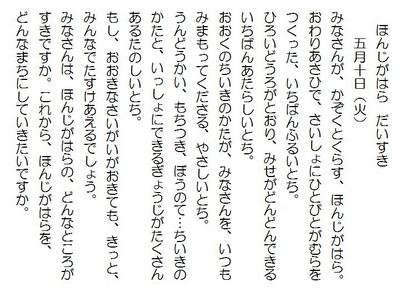 ほんじがはら　だいすき
五月十日（火）
みなさんが、かぞくとくらす、ほんじがはら。
おわりあさひで、さいしょにひとびとがむらを
つくった、いちばんふるいとち。
ひろいどうろがとおり、みせがどんどんできる
いちばんあたらしいとち。
おおくのちいきのかたが、みなさんを、いつも
みまもってくださる、やさしいとち。
うんどうかい、もちつき、ぼうのて…ちいきの
かたと、いっしょにできるぎょうじがたくさん
あるたのしいとち。
もし、おおきなさいがいがおきても、きっと、
みんなでたすけあえるでしょう。
みなさんは、ほんじがはらの、どんなところが
すきですか。これから、ほんじがはらを、
どんなまちにしていきたいですか。